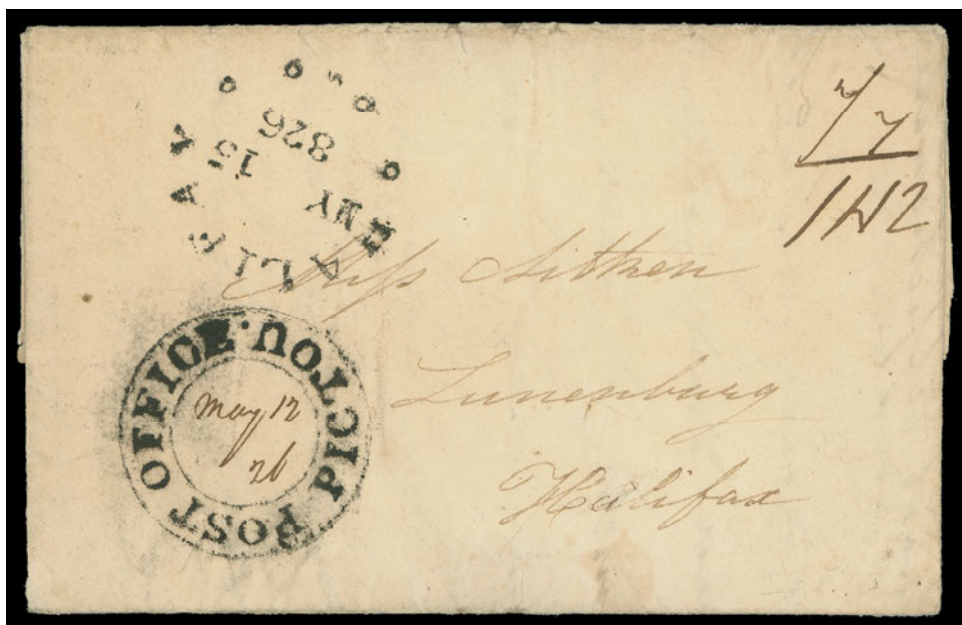 7/7
1N2
HALIFAX
MY 15
826
Miss Aitken
Lunenburg
Halifax
POST OFFICE. PICTOU
May 12
26